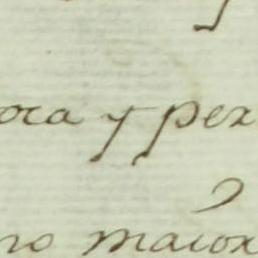 ora y per
no maior